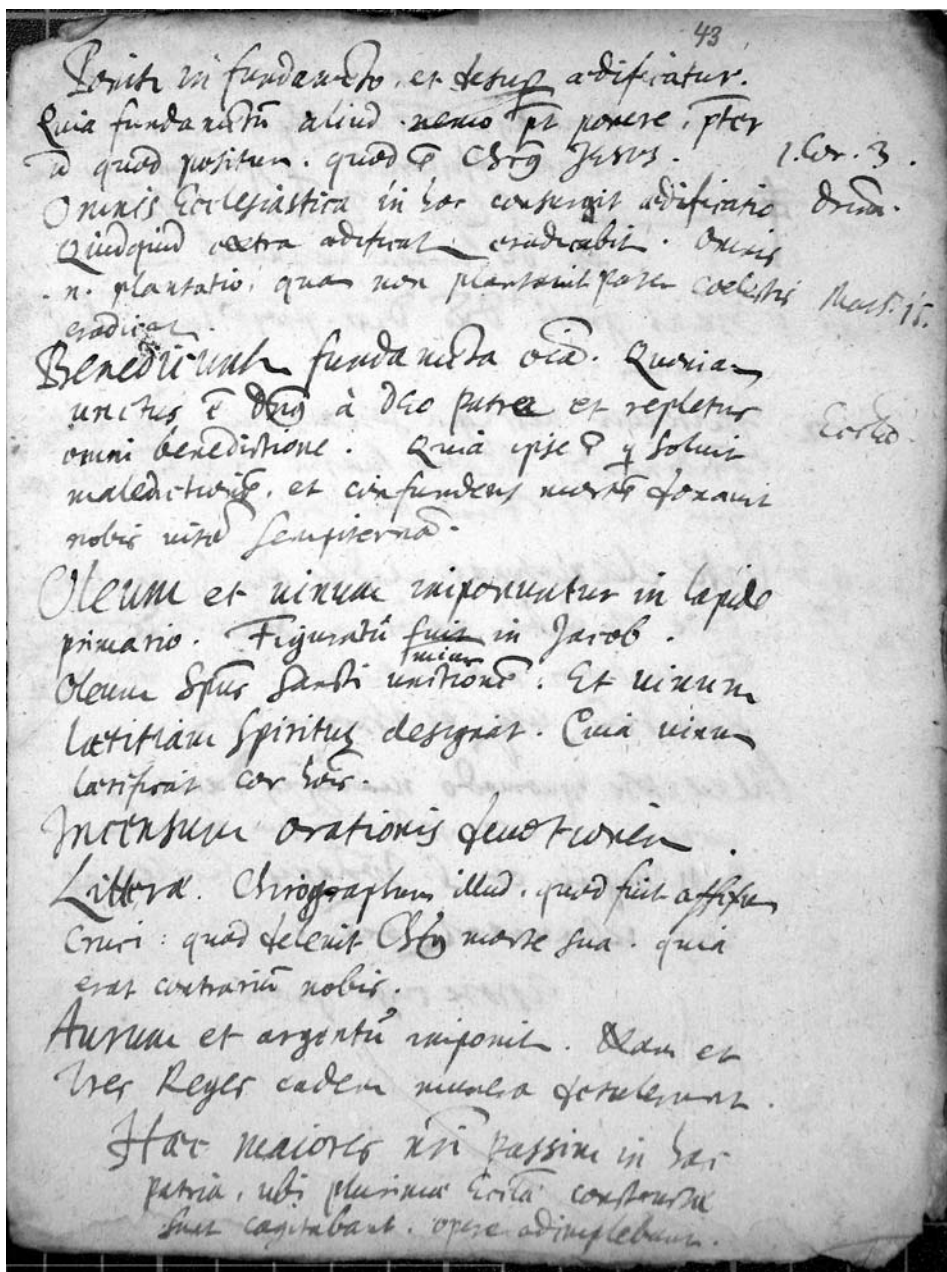 43
Ponit in fundamēto, et desup ædificatur.
Quia fundamētū aliud nemo pt ponere, pter
id quod positum. quod ē Chrs Jesus. 1. Cor. 3.
Omnis Ecclesiastica in hac consurgit ædificatio
Quidquid extra ædificat, eradicabit. Omnis
.n. plantatio, quam non plantauit pater cœlestis Math. 15.
eradicat
fundamēta Quoniam
unctus ē Dns à Deo patre et repletus
omni benedictione. Quia ipse ē q soluit
maledictionē, et confundens mortē donauit
nobis uitā sempiternā.
Oleum et uinum imponuntur in lapide
primario. Figuratū fuit in Jacob.
Oleum Spūs Sancti unctionē. Et uinum
lætitiam Spiritus designat. Quia uinum
lætificat cor hōis.
Incensum orationis deuotionem.
Litteræ. Chirographum illud, quod fuit affixum
Cruci: quod deleuit Chrs morte sua. quia
erat contrariū nobis.
Aurum et argentū imponit. Nam et
tres Reges eadem munera detulerunt.
Hæc maiores nri passim in hac
patria, ubi plurimæ Eccliæ constructæ
sunt cogitabant. opere adimplebant.